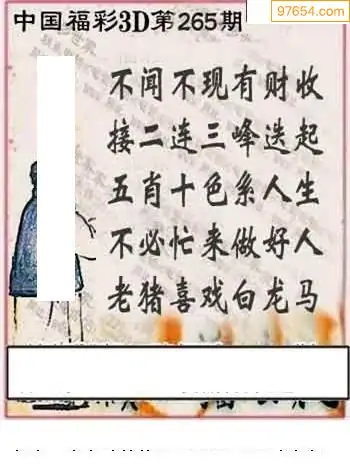 97654.com
中国福彩3D第265期
不闻不现有财收
接二连三峰迭起
五肖十色系人生
不必忙来做好人
老猪喜戏白龙马